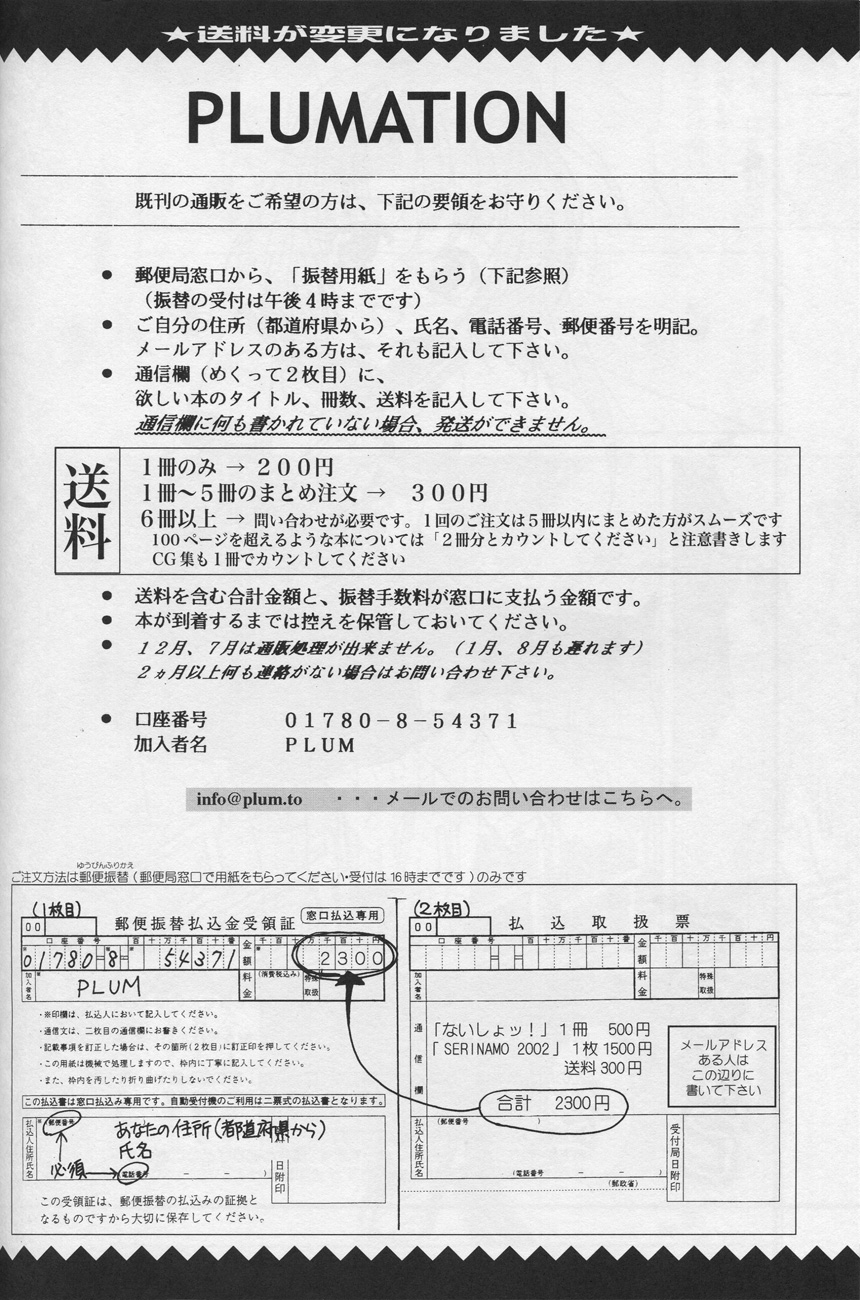 ★送料が変更になりました★
PLUMATION
既刊の通販をご希望の方は、下記の要領をお守りください。
● 郵便局窓口から、「振替用紙」をもらう（下記参照）
（振替の受付は午後４時までです）
● ご自分の住所（都道府県から）、氏名、電話番号、郵便番号を明記。
メールアドレスのある方は、それも記入して下さい。
● 通信欄（めくって２枚目）に、
欲しい本のタイトル、冊数、送料を記入して下さい。
通信欄に何も書かれていない場合、発送ができません。
送料
１冊のみ → ２００円
１冊～５冊のまとめ注文 → ３００円
６冊以上 → 問い合わせが必要です。１回のご注文は５冊以内にまとめた方がスムーズです
100ページを超えるような本については「２冊分とカウントしてください」と注意書きします
CG集も１冊でカウントしてください
● 送料を含む合計金額と、振替手数料が窓口に支払う金額です。
● 本が到着するまでは控えを保管しておいてください。
● １２月、７月は通販処理が出来ません。（１月、８月も遅れます）
２ヵ月以上何も連絡がない場合はお問い合わせ下さい。
● 口座番号 ０１７８０－８－５４３７１
加入者名 ＰＬＵＭ
info@plum.to ・・・メールでのお問い合わせはこちらへ。
ゆうびんふりかえ
ご注文方法は郵便振替（郵便局窓口で用紙をもらってください・受付は16時までです）のみです
(1枚目)
00
郵便振替払込金受領証
窓口払込専用
口座番号 百十万千百十番
金額
千百十万千百十円
01780-8- 54371
2300
加入者名
PLUM
料金
(消費税込み)
特殊取扱
・※印欄は、払込人において記入してください。
・通信文は、二枚目の通信欄にお書きください。
・記載事項を訂正した場合は、その箇所(２枚目)に訂正印を押してください。
・この用紙は機械で処理しますので、枠内に丁寧に記入してください。
・また、枠内を汚したり折り曲げたりしないでください。
この払込書は窓口払込み専用です。自動受付機のご利用は二票式の払込書となります。
払込人住所氏名
(郵便番号)
あなたの住所(都道府県から)
氏名
必須
(電話番号 － － )
日附印
この受領証は、郵便振替の払込みの証拠と
なるものですから大切に保存してください。
(2枚目)
00
払込取扱票
口座番号 百十万千百十番
金額
千百十万千百十円
加入者名
料金
特殊取扱
通信欄
「ないしょッ！」１冊 500円
「SERINAMO 2002」１枚 1500円
送料 300円
合計 2300円
メールアドレス
ある人は
この辺りに
書いて下さい
払込人住所氏名
(郵便番号 )
(電話番号 － － )
受付局日附印
(郵政省)